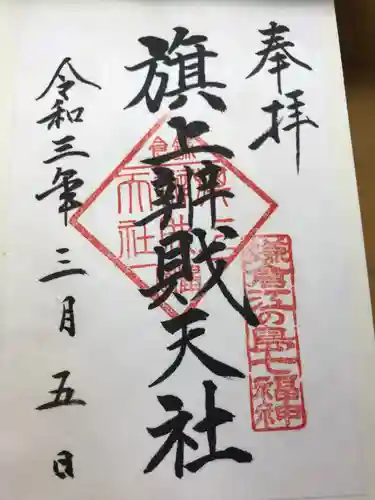 奉拝
鎌倉江の島七福神
旗上辨財天社
令和三年三月五日